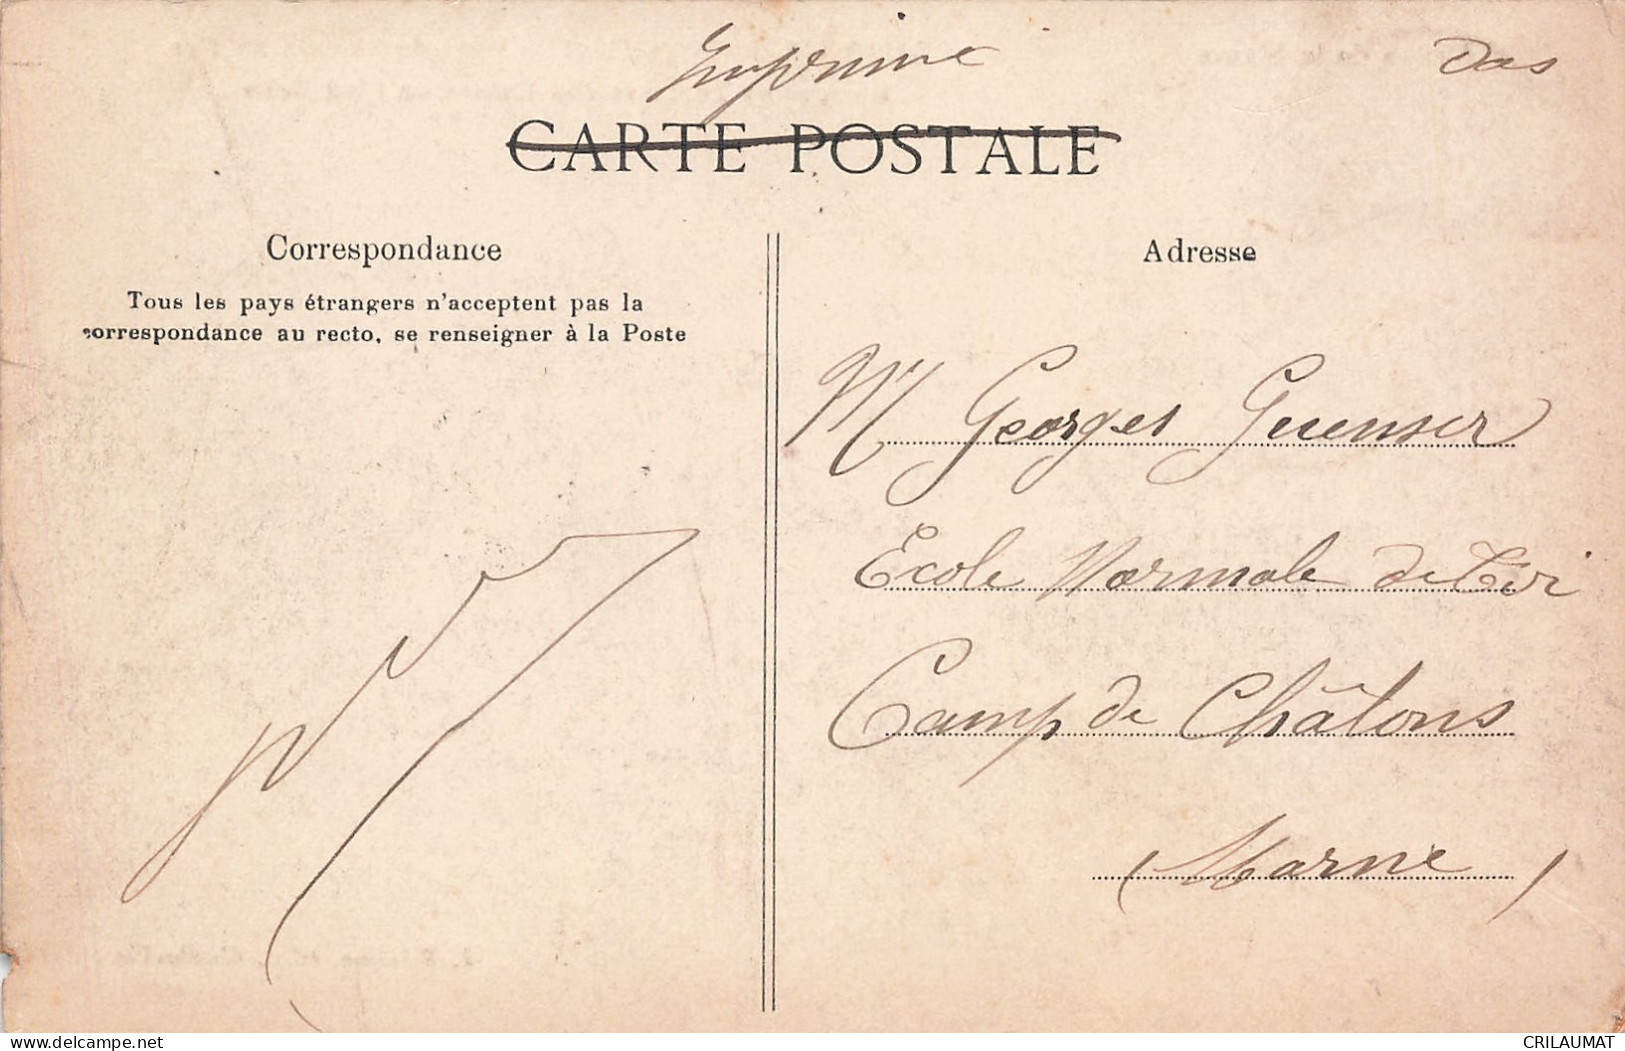 Imprimé
CARTE POSTALE
Correspondance
Tous les pays étrangers n'acceptent pas la
correspondance au recto, se renseigner à la Poste
Adresse
Mr Georges
Ecole Normale de Tir
Camp de Châlons
(Marne)
delcampe.net
CRILAUMAT